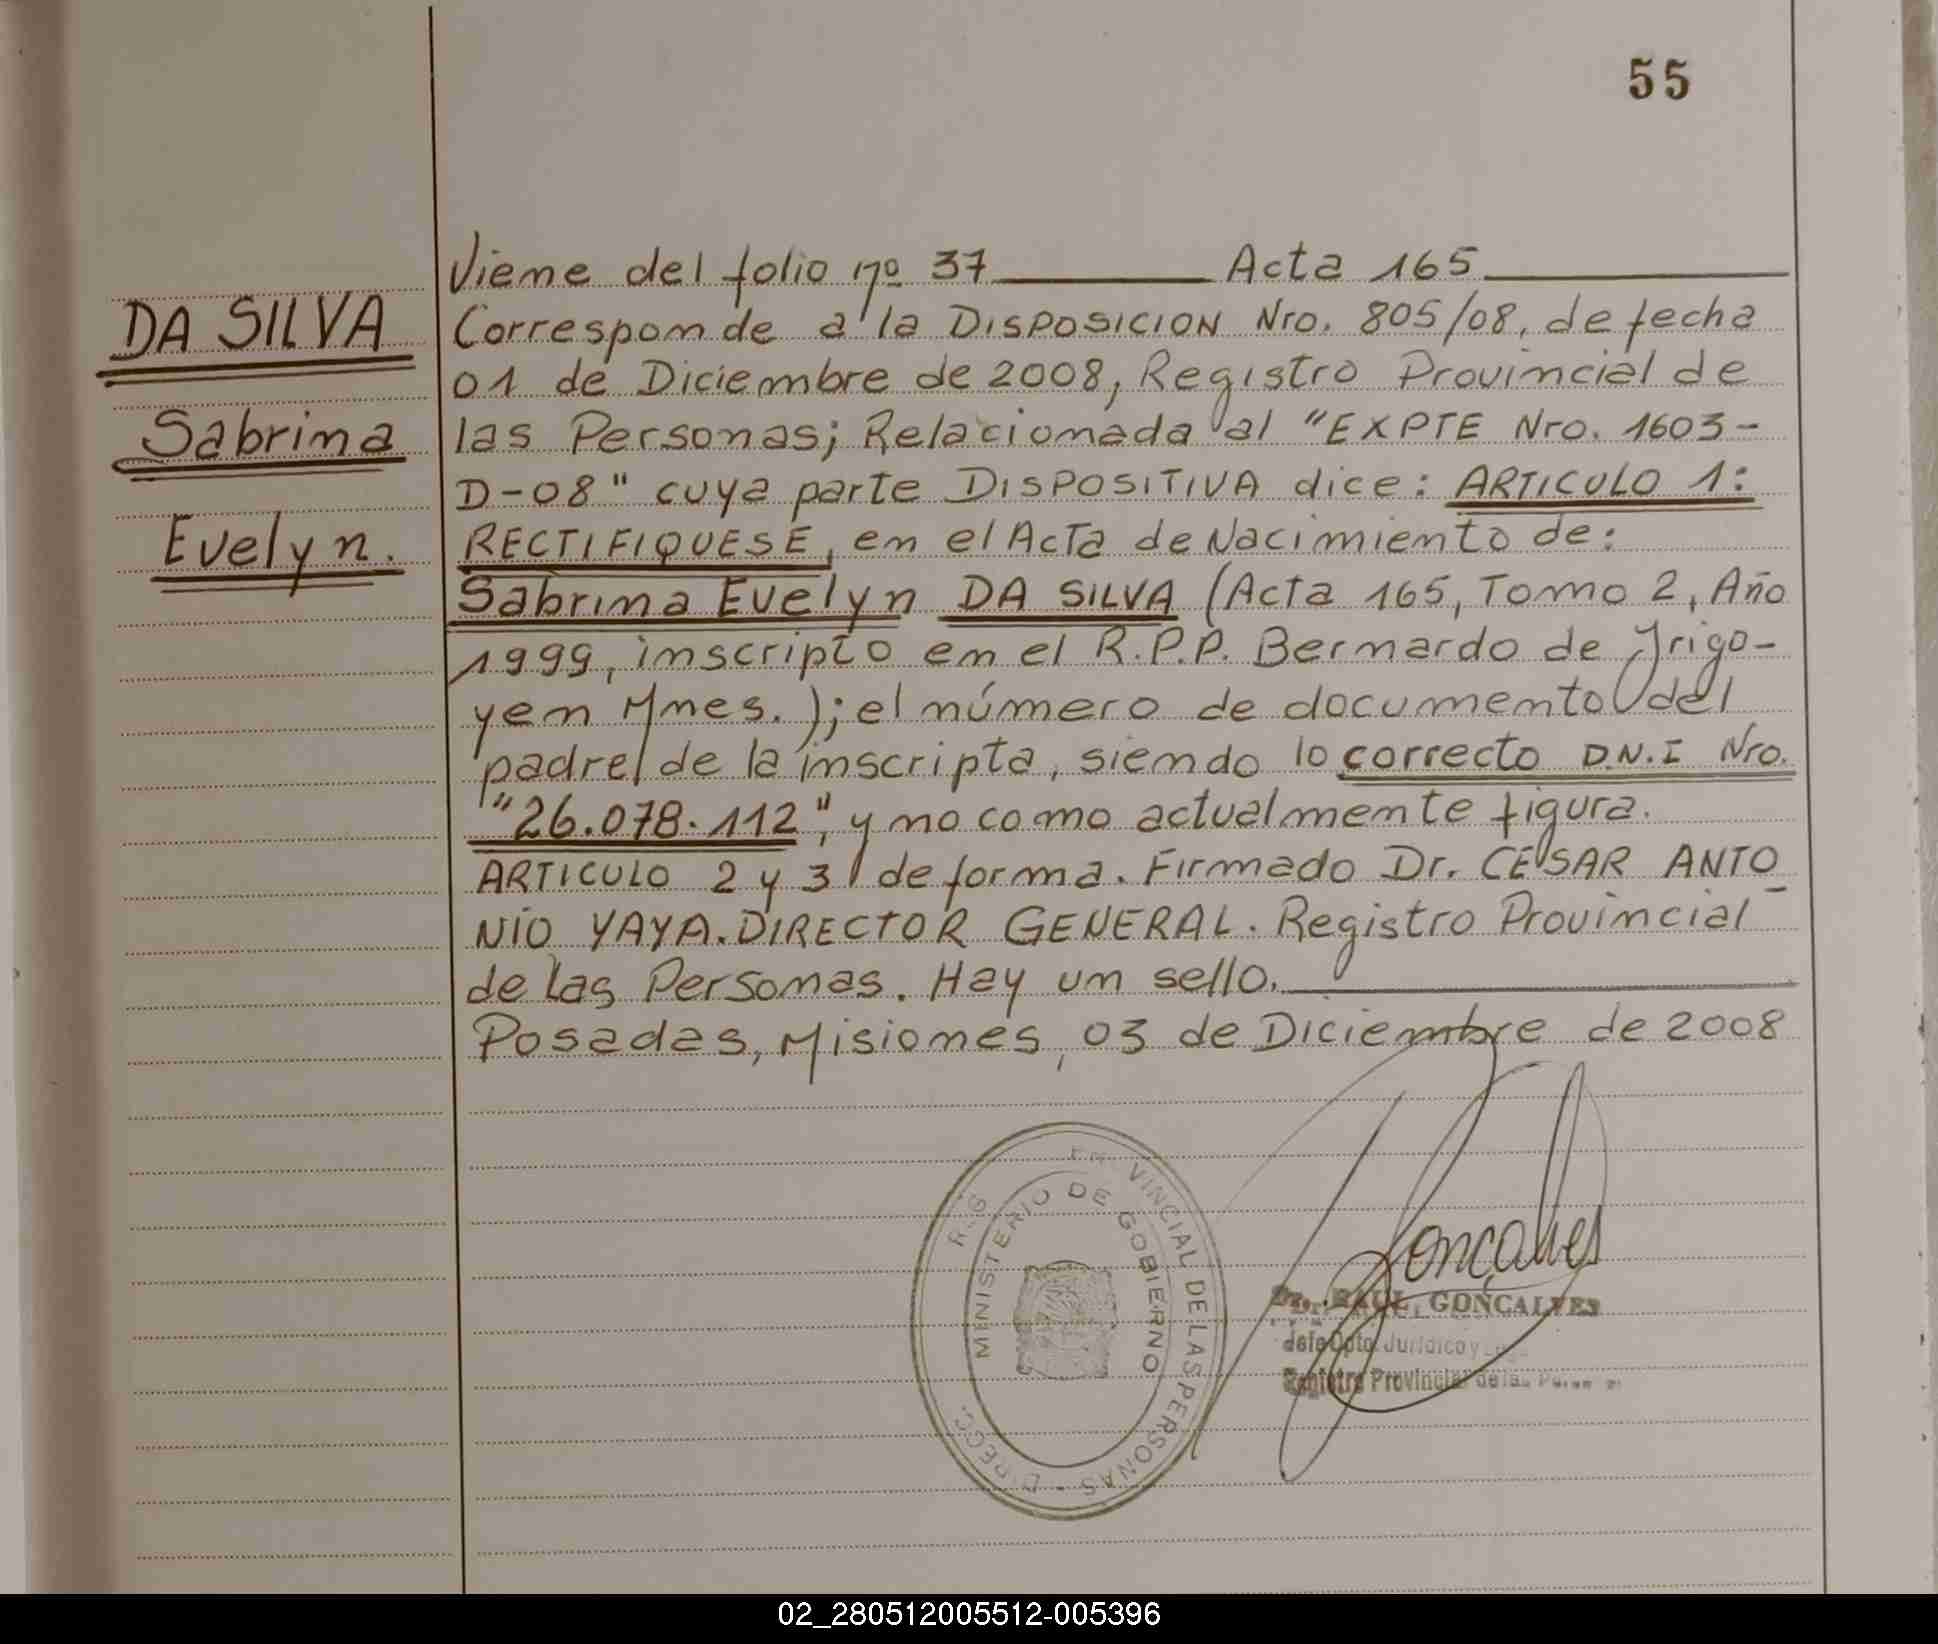 55
DA SILVA
Sabrina
Evelyn.
Viene del folio nº 37 Acta 165
Corresponde a la DISPOSICION Nro. 805/08, de fecha
01 de Diciembre de 2008, Registro Provincial de
las Personas; Relacionada al "EXPTE Nro. 1603-
D-08" cuya parte DISPOSITIVA dice: ARTICULO 1:
RECTIFIQUESE, en el Acta de Nacimiento de:
Sabrina Evelyn DA SILVA (Acta 165, Tomo 2, Año
1999, inscripto en el R.P.P. Bernardo de Irigo-
yen Mnes.); el número de documento del
padre de la inscripta, siendo lo correcto D.N.I Nro.
"26.078.112", y no como actualmente figura.
ARTICULO 2 y 3 de forma. Firmado Dr. CESAR ANTO_
NIO YAYA. DIRECTOR GENERAL. Registro Provincial
de las Personas. Hay un sello.
Posadas, Misiones, 03 de Diciembre de 2008
VINCIAL DE LAS PERSONAS
MINISTERIO DE GOBIERNO
Gonçalves
Dr. RAUL GONÇALVES
Jefe Dpto. Jurídico y
Registro Provincial de las
02_280512005512-005396